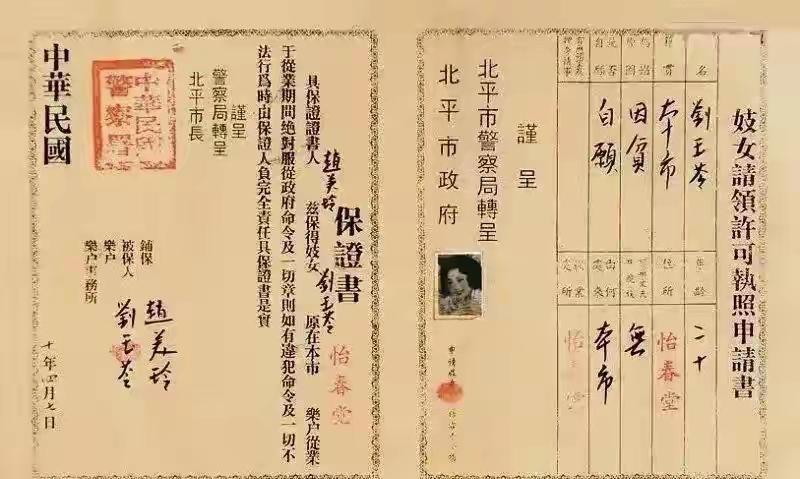 妓女請領許可執照申請書
姓名 劉玉苓 年齡 二十
籍貫 本市 住所 怡春堂
為娼原因 因貧 無
是否自願 自願 由何處來 本市
謹呈
北平市警察局轉呈
北平市政府
保證書
具保證證書人 趙美玲 茲保得妓女 劉玉苓 原在本市 怡春堂 樂户從業
于從業期間絶對服從政府命令及一切章則如有違犯命令及一切不
法行爲時由保證人負完全責任具保證書是實
謹呈
警察局轉呈
北平市長
中華民國
警察署
鋪保 趙美玲
被保人 劉玉苓
樂户
樂户事務所
中華民國
十年四月七日